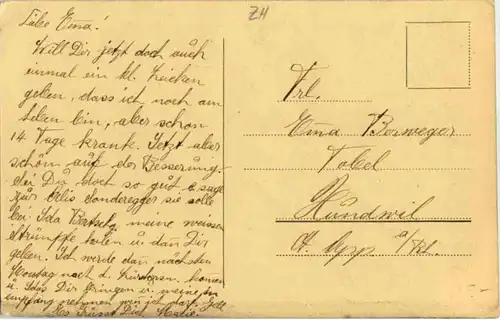 ZH
Liebe Emma!
Will Dir jetzt doch auch
einmal ein kl. Zeichen
geben, dass ich noch am
Leben bin, aber schon
14 Tage krank. Jetzt aber
schön auf der Besserung.
Sei Du doch so gut & sage
zur Elis Sonderegger sie solle
bei Ida meine weissen
Strümpfe holen u. dan Dir
geben. Ich werde dan nächsten
Montag nach d. kommen
u. Idas Dir bringen u. meine in
empfang nehmen wen ich darf. Gell
Es Grüsst Dich
Frl.
Emma Berweger
Tobel
Hundwil
Kt. App. a/Rh.